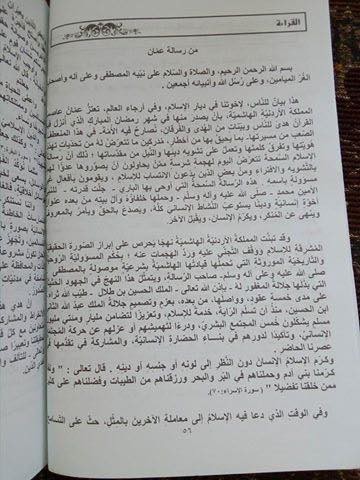 القراءة
من رسالة عمّان
بسم الله الرحمن الرحيم، والصلاة والسّلام على نبيّه المصطفى وعلى آله وأصحابه
الغُرّ الميامين، وعلى رُسُل الله وأنبيائه أجمعين .
هذا بيانٌ للنّاس، لإخوتنا في ديار الإسلام، وفي أرجاء العالم، تعتزّ عمّان عاصمة
المملكة الأردنيّة الهاشميّة، بأن يصدر منها في شهر رمضان المبارك الذي أنزل فيه
القرآن هدى للنّاس وبيّنات من الهدى والفرقان، نُصارحُ فيه الأمة، في هذا المنعطف
الصّعب من مسيرتها، بما يحيق بها من أخطار، مدركين ما تتعرّض له من تحدّيات تهدّد
هُويّتها وتفرق كلمتها وتعمل على تشويه دينها والنّيل من مقدّساتها ؛ ذلك أن رسالة
الإسلام السّمحة تتعرّض اليوم لهجمة شرسة ممّن يحاولون أن يصوّروها عدوّا لهم،
بالتّشويه والافتراء، ومن بعض الذين يدعون الانتساب للإسلام، ويقومون بأفعال غير
مسؤولة باسمه . هذه الرسالة السّمحة التي أوحى بها الباري - جلّت قدرته - للنّبي
الأمين محمد - صلّى الله عليه وآله وسلم - وحملها خلفاؤه وآل بيته من بعده عنوان
أخوّة إنسانيّة ودينًا يستوعبُ النّشاط الإنسانيّ كلّه، ويصدع بالحق ويأمر بالمعروف
وينهى عن المنكر، ويكرم الإنسان، ويقبل الآخر.
وقد تبنّت المملكة الأردنيّة الهاشميّة نهجًا يحرص على إبراز الصّورة الحقيقيّة
المشرقة للإسلام ووقف التّجني عليه وردّ الهجمات عنه ؛ بحكم المسؤوليّة الرّوحيّة
والتّاريخيّة الموروثة التي تحملها قيادتها الهاشميّة بشرعيّة موصولة بالمصطفى -
صلّى الله عليه وسلم وآله - صاحب الرسالة، ويتمثّل هذا النهج في الجهود الحثيثة
التي بذلها جلالة المغفور له - بإذن الله تعالى - الملك الحسين بن طلال - طيب الله ثراه -
على مدى خمسة عقود، وواصلها، من بعده، بعزم وتصميم جلالة الملك عبد الله الثاني
ابن الحسين، منذ أن تسلّم الرّاية، خدمة للإسلام، وتعزيزًا لتضامن مليار ومئتي مليون
مسلم يشكلون خمس المجتمع البشري، ودرءًا لتهميشهم أو عزلهم عن حركة المجتمع
الإنسانيّ، وتأكيدا لدورهم في بناء الحضارة الإنسانيّة، والمشاركة في تقدّمها في
عصرنا الحاضر
وكرّم الإسلام الإنسان دون النّظر إلى لونه أو جنسه أو دينه . قال تعالى : " ولقد
كرّمنا بني آدم وحملناهم في البّر والبحر ورزقناهم من الطيبات وفضلناهم على كثير
ممن خلقنا تفضيلا " ( سورة الإسراء:٧٠).
وفي الوقت الذي دعا فيه الإسلامُ إلى معاملة الآخرين بالمثل، حثّ على التّسامح
٥٦